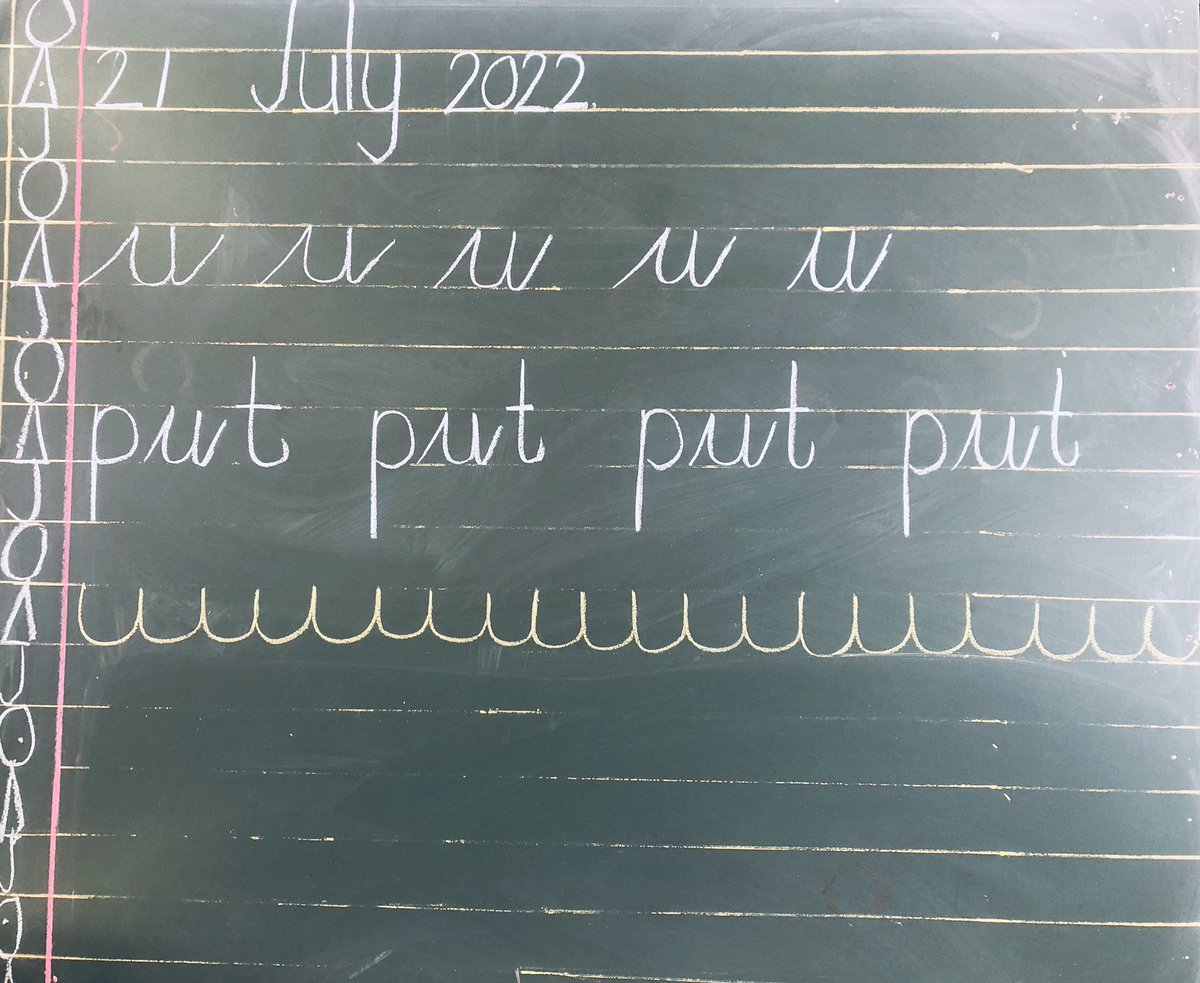 21 July 2022.
u u u u u
put put put put